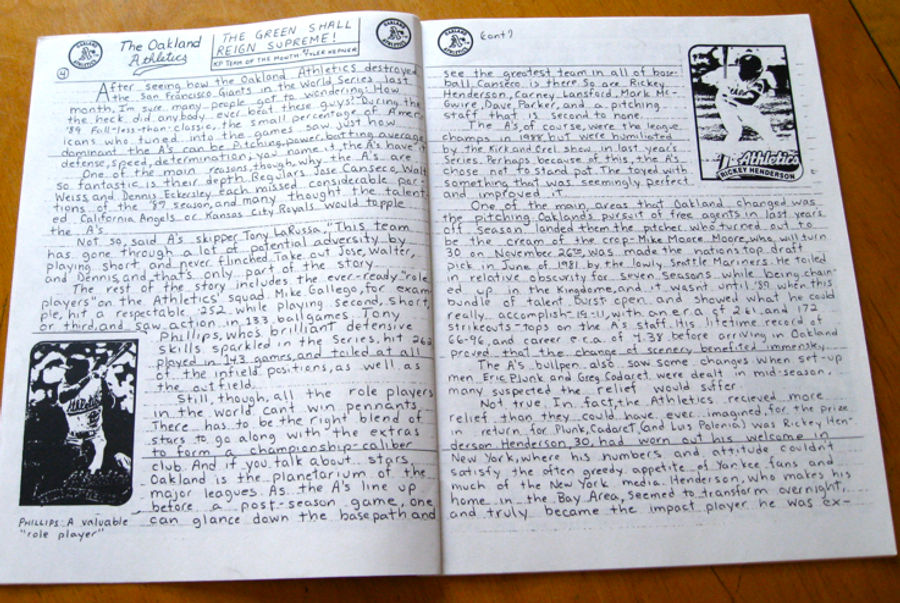 OAKLAND ATHLETICS
The Oakland
Athletics
THE GREEN SHALL
REIGN SUPREME!
KP TEAM OF THE MONTH TYLER KEPNER
OAKLAND ATHLETICS
4
After seeing how the Oakland Athletics destroyed
the San Francisco Giants in the World Series last
month, I'm sure many people got to wondering: How
the heck did anybody ever beat these guys? During the
'89 Fall-less-than-classic, the small percentage of Amer-
icans who tuned into the games saw just how
dominant the A's can be. Pitching, power, batting average,
defense, speed, determination, you name it, the A's have it.
One of the main reasons, though, why the A's are
so fantastic is their depth. Regulars Jose Canseco, Walt
Weiss, and Dennis Eckersley each missed considerable por-
tions of the '89 season, and many thought the talent-
ed California Angels or Kansas City Royals would topple
the A's.
Not so, said A's skipper Tony LaRussa. "This team
has gone through a lot of potential adversity by
playing short, and never flinched. Take out Jose, Walter,
and Dennis, and that's only part of the story."
The rest of the story includes the ever-ready "role
players" on the Athletics' squad. Mike Gallego, for exam-
ple, hit a respectable .252 while playing second, short,
or third, and saw action in 133 ballgames. Tony
Phillips, who's brilliant defensive
skills sparkled in the Series, hit .262
played in 143 games, and toiled at all
of the infield positions, as well as
the outfield.
Still, though, all the role players
in the world can't win pennants.
There has to be the right blend of
stars to go along with the extras
to form a championship-caliber
club. And if you talk about stars,
Oakland is the planetarium of the
major leagues. As the A's line up
before a post-season game, one
can glance down the basepath and
Athletics
PHILLIPS: A valuable
"role player"
OAKLAND ATHLETICS
Cont'd
see the greatest team in all of base-
ball. Canseco is there. So are Rickey
Henderson, Carney Lansford, Mark Mc-
Gwire, Dave Parker, and a pitching
staff that is second to none.
The A's, of course, were the league
champs in 1988, but were humiliated
by the Kirk and Orel show in last year's
Series. Perhaps because of this, the A's
chose not to stand pat. The toyed with
something that was seemingly perfect
and improved it.
Athletics
RICKEY HENDERSON
One of the main areas that Oakland changed was
the pitching. Oakland's pursuit of free agents in last year's
off season landed them the pitcher who turned out to
be the cream of the crop-Mike Moore. Moore, who will turn
30 on November 26th, was made the nation's top draft
pick in June of 1981 by the lowly Seattle Mariners. He toiled
in relative obscurity for seven seasons while being chain-
ed up in the Kingdome, and it wasn't until '89 when this
bundle of talent burst open and showed what he could
really accomplish-19-11, with an e.r.a. of 2.61 and 172
strikeouts-tops on the A's staff. His lifetime record of
66-96, and career e.r.a. of 4.38 before arriving in Oakland
proved that the change of scenery benefited immensely.
The A's bullpen also saw some changes when set-up
men Eric Plunk and Greg Cadaret were dealt in mid-season.
many suspected the relief would suffer.
Not true. In fact, the Athletics recieved more
relief than they could have ever imagined, for the prize
in return for Plunk, Cadaret, (and Luis Polonia) was Rickey Hen-
derson. Henderson, 30, had worn out his welcome in
New York, where his numbers and attitude couldn't
satisfy the often greedy appetite of Yankee fans and
much of the New York media. Henderson, who makes his
home in the Bay Area, seemed to transform overnight,
and truly became the impact player he was ex-